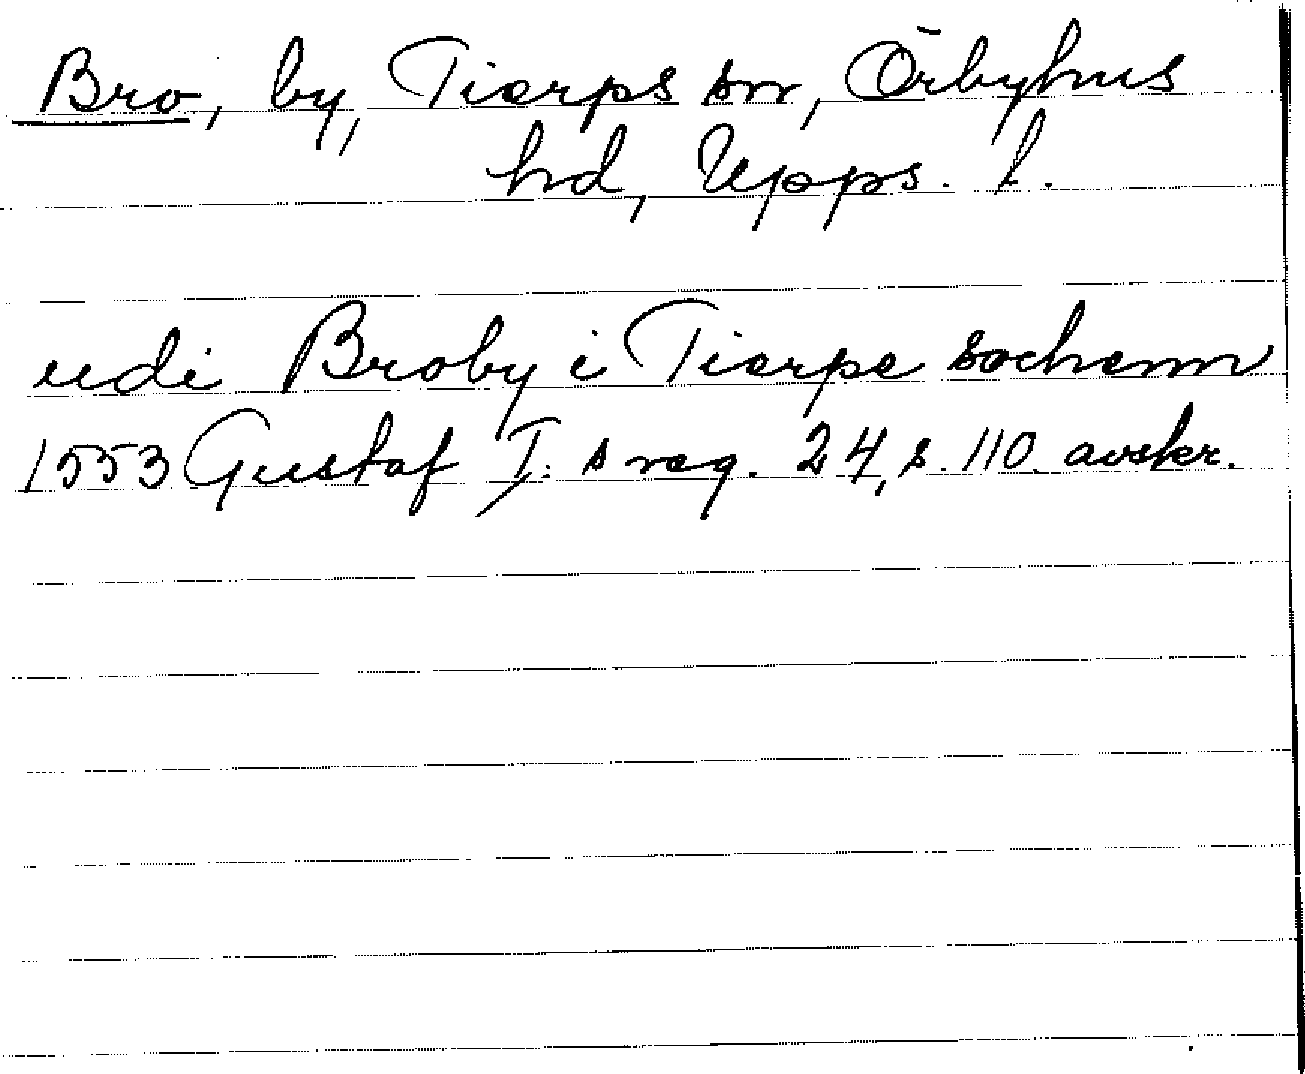 Bro, by, Tierps sn, Örbyhus
hd, Upps. l.
udi Broby i Tierpe sochenn
1553 Gustaf I:s reg. 24, s. 110 avskr.